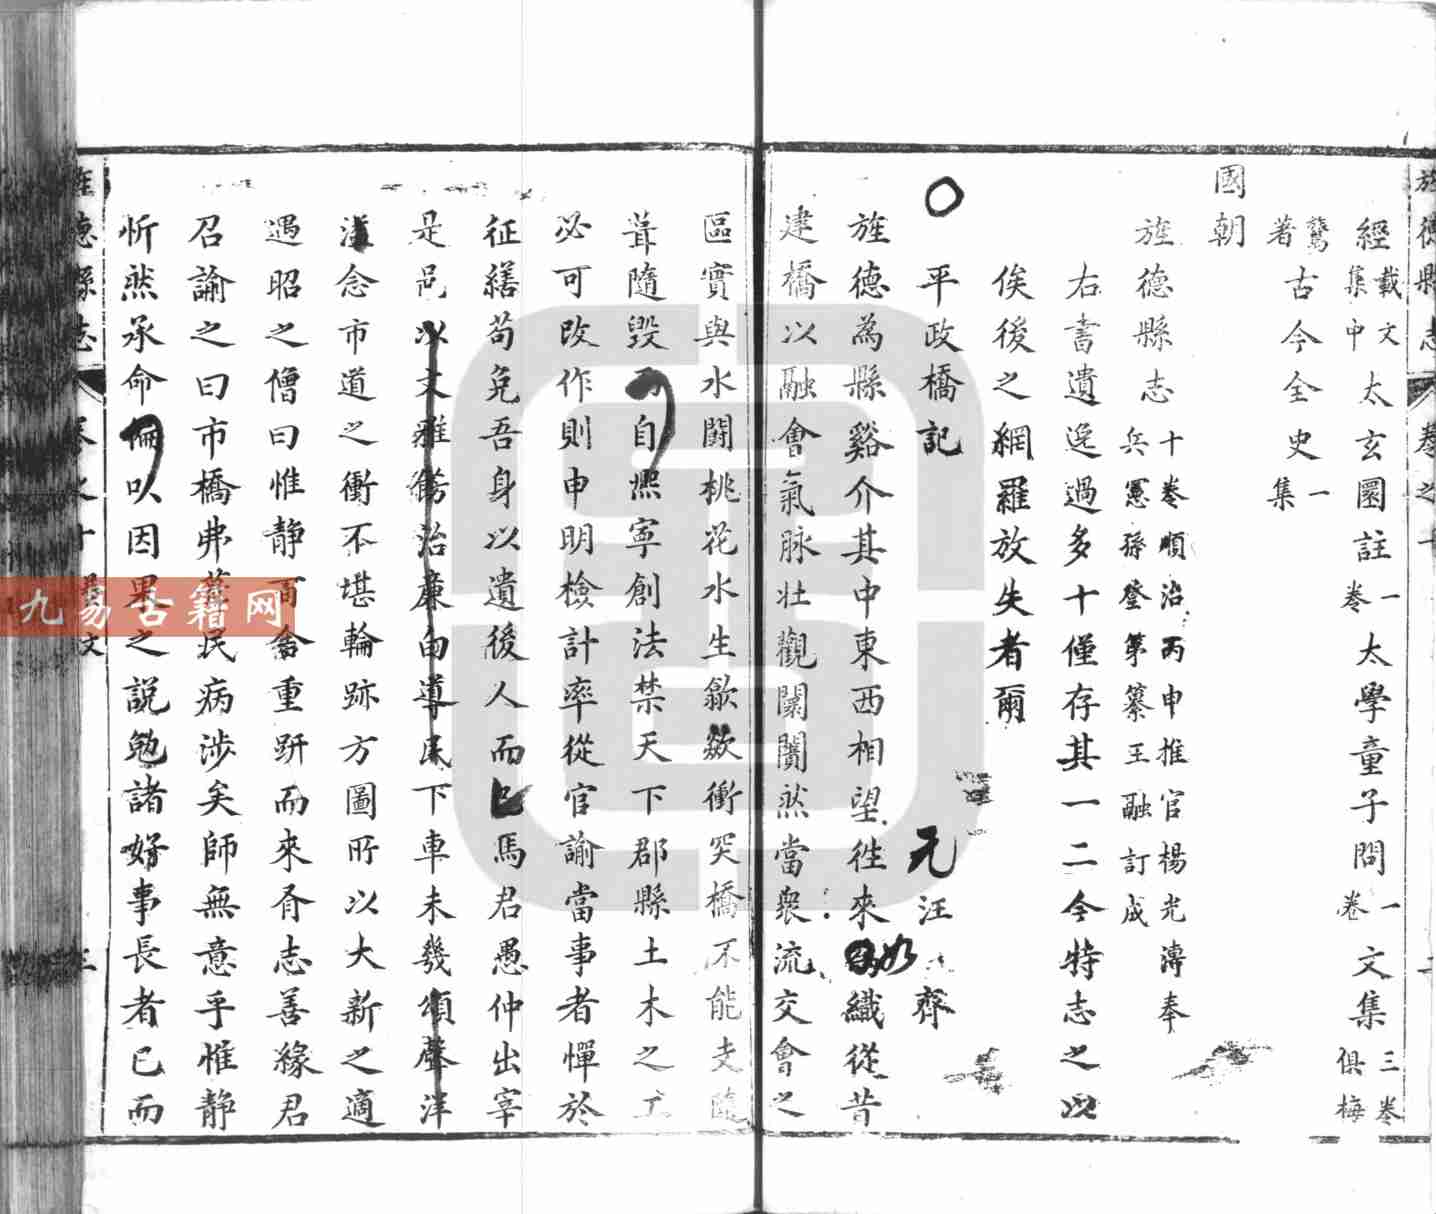 旌德縣志 卷之十 二
經載文集中 太玄圜註一卷 太學童子問一卷 文集三卷俱梅
鷟著 古今全史一集
國朝
旌德縣志十卷順治丙申推官楊光溥奉兵憲孫登第纂王融訂成
右書遺逸過多十僅存其一二今特志之以
俟後之網羅放失者爾
平政橋記 元 汪齊
旌德為縣谿介其中東西相望徃來如織從昔
建橋以融會氣脉壯觀闤闠然當衆流交會之
區實與水鬪桃花水生歘歘衝突橋不能支隨
葺隨毀而自熙寧創法禁天下郡縣土木之工
必可改作則申明檢計率從官諭當事者憚於
征繕苟免吾身以遺後人而已馬君愚仲出宰
是邑以文雅飾治廉白導民下車未幾頌聲洋
溢念市道之衝不堪輪跡方圖所以大新之適
遇昭之僧曰惟静百舍重趼而來胥志善緣君
召諭之曰市橋弗葺民病涉矣師無意乎惟静
忻然承命徧以因果之説勉諸好事長者已而
旌德縣志 卷之十 文 三
九易古籍网